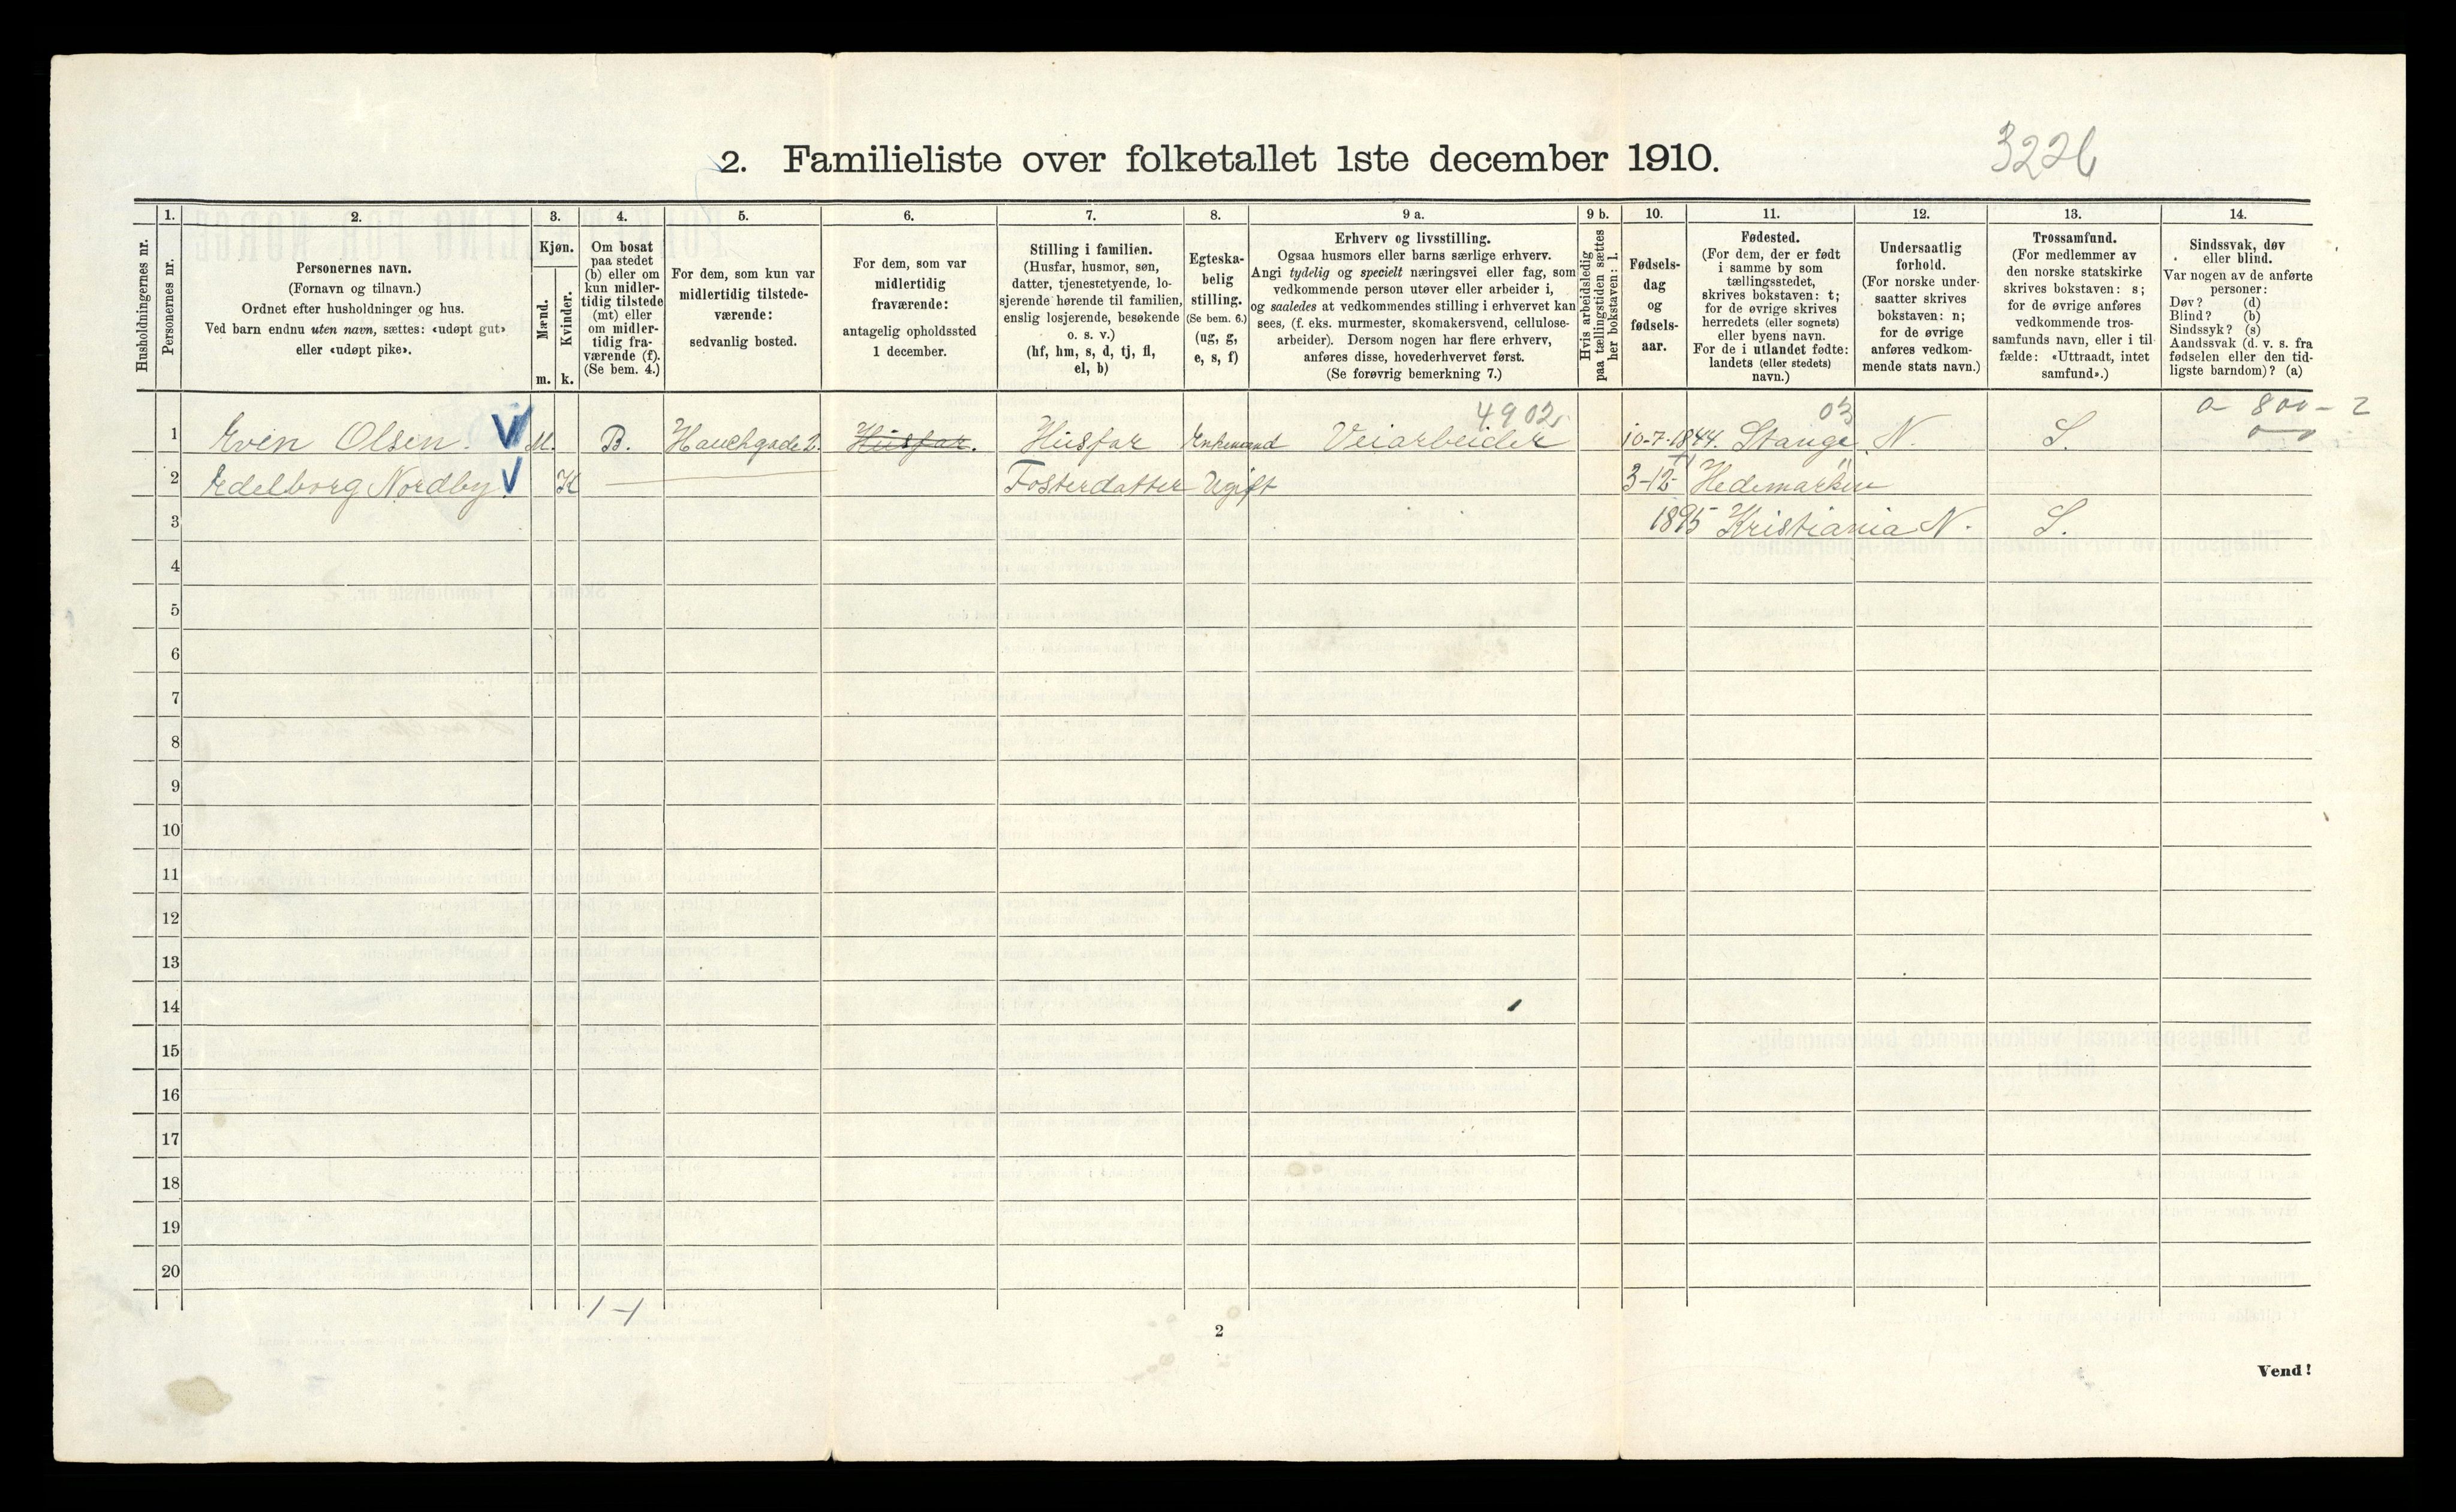 2. Familieliste over folketallet 1ste december 1910.
3226
Husholdningernes nr.
1.
Personernes nr.
2.
Personernes navn.
(Fornavn og tilnavn.)
Ordnet efter husholdninger og hus.
Ved barn endnu uten navn, sættes: «udøpt gut»
eller «udøpt pike».
3.
Kjøn.
Mænd.
Kvinder.
m.
k.
4.
Om bosat
paa stedet
(b) eller om
kun midler-
tidig tilstede
(mt) eller
om midler-
tidig fra-
værende (f).
(Se bem. 4.)
5.
For dem, som kun var
midlertidig tilstede-
værende:
sedvanlig bosted.
6.
For dem, som var
midlertidig
fraværende:
antagelig opholdssted
1 december.
7.
Stilling i familien.
(Husfar, husmor, søn,
datter, tjenestetyende, lo-
sjerende hørende til familien,
enslig losjerende, besøkende
o. s. v.)
(hf, hm, s, d, tj, fl,
el, b)
8.
Egteska-
belig
stilling.
(Se bem. 6.)
(ug, g,
e, s, f)
9 a.
Erhverv og livsstilling.
Ogsaa husmors eller barns særlige erhverv.
Angi tydelig og specielt næringsvei eller fag, som
vedkommende person utøver eller arbeider i,
og saaledes at vedkommendes stilling i erhvervet kan
sees, (f. eks. murmester, skomakersvend, cellulose-
arbeider). Dersom nogen har flere erhverv,
anføres disse, hovederhvervet først.
(Se forøvrig bemerkning 7.)
9 b.
Hvis arbeidsledig
paa tællingstiden sættes
her bokstaven: l.
10.
Fødsels-
dag
og
fødsels-
aar.
11.
Fødested.
(For dem, der er født
i samme by som
tællingsstedet,
skrives bokstaven: t;
for de øvrige skrives
herredets (eller sognets)
eller byens navn.
For de i utlandet fødte:
landets (eller stedets)
navn.)
12.
Undersaatlig
forhold.
(For norske under-
saatter skrives
bokstaven: n;
for de øvrige
anføres vedkom-
mende stats navn.)
13.
Trossamfund.
(For medlemmer av
den norske statskirke
skrives bokstaven: s;
for de øvrige anføres
vedkommende tros-
samfunds navn, eller i til-
fælde: «Uttraadt, intet
samfund».)
14.
Sindssvak, døv
eller blind.
Var nogen av de anførte
personer:
Døv? (d)
Blind? (b)
Sindssyk? (s)
Aandssvak (d. v. s. fra
fødselen eller den tid-
ligste barndom)? (a)
4902 03 0 - 800 - 2
1 Even Olsen. M. B. Hauchgade 2. Husfar. Husfar Enkemand Veiarbeider 10-7-1844. Stange N. S.
2 Edelborg Nordby. K Fosterdatter Ugift 3-12- Hedemarken
3 1895 Kristiania N. S.
4
5
6
7
8
9
10
11
12
13
14
15
16
17
18
19
20
1-1
2
Vend!